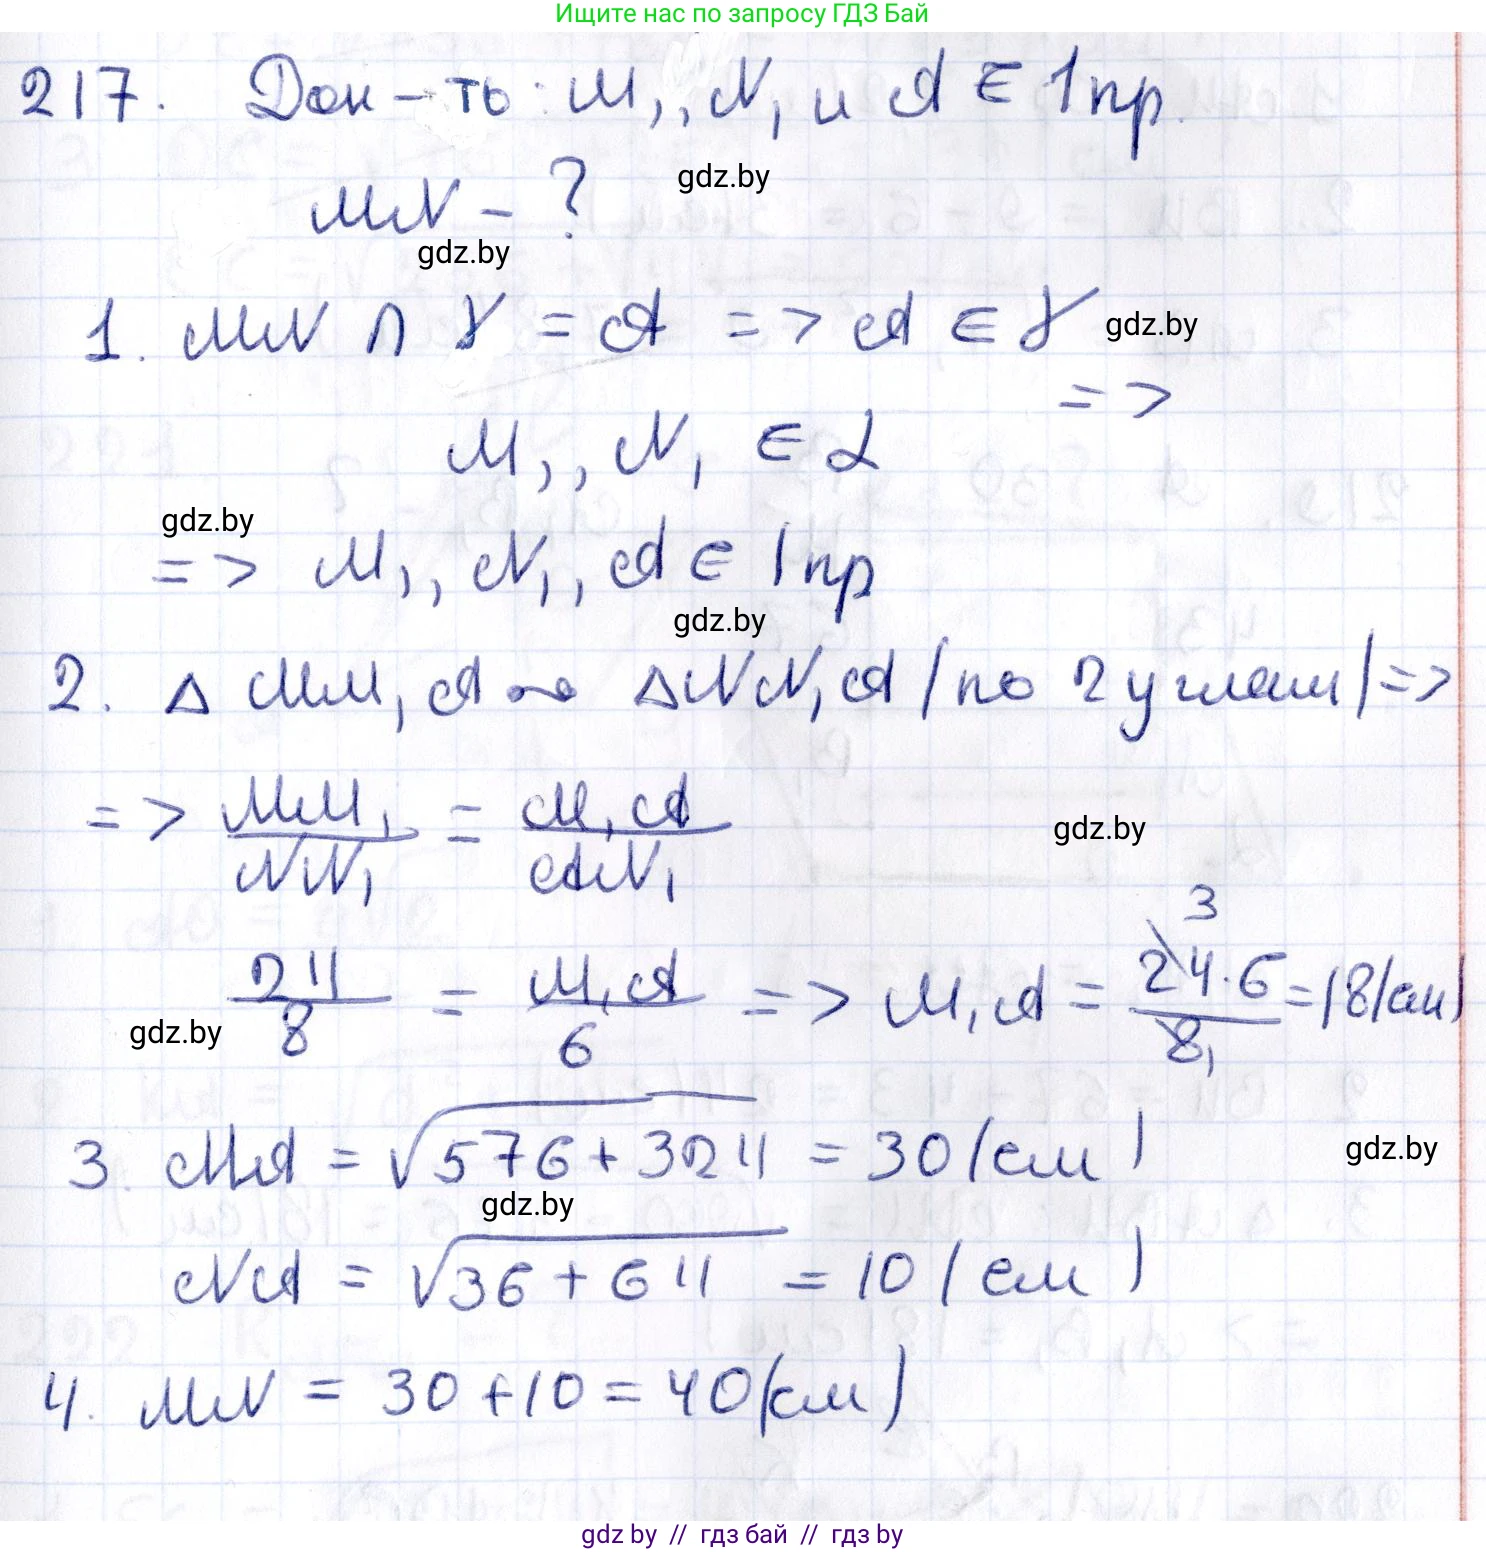 Ищите нас по запросу ГДЗ Бай
217. Док-ть: M₁, N₁ и A ∈ 1 пр.
gdz.by
MN - ?
gdz.by
1. MN ∩ γ = A => A ∈ γ
gdz.by
=>
M₁, N₁ ∈ α
gdz.by
=> M₁, N₁, A ∈ 1 пр
gdz.by
2. △ MM₁A ∾ △NN₁A (по 2 углам) =>
=> MM₁/NN₁ = M₁A/AN₁
gdz.by
24/8 = M₁A/6 => M₁A = 24·6/8 = 18 (см)
3
1
gdz.by
3. MA = √576+324 = 30 (см)
gdz.by
gdz.by
NA = √36+64 = 10 (см)
4. MN = 30+10 = 40 (см)
gdz.by // гдз бай // гдз by